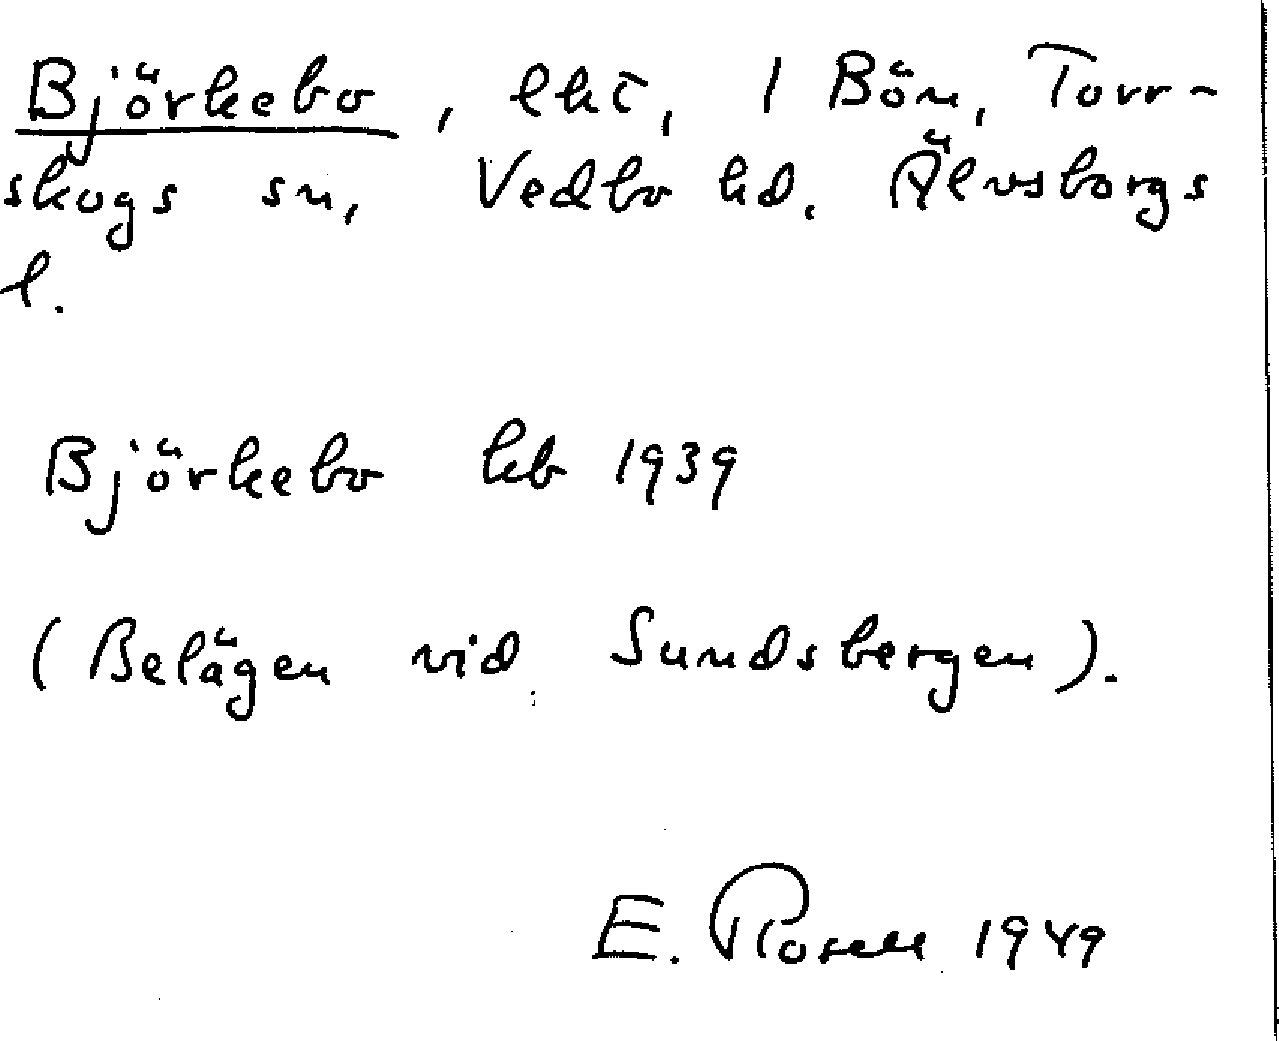 Björkebo, lht, 1 Bön, Torr-
skogs sn, Vedbo hd. Älvsborgs
l.
Björkebo kb 1939
(Belägen vid Sundsbergen).
E. Rosell 1949